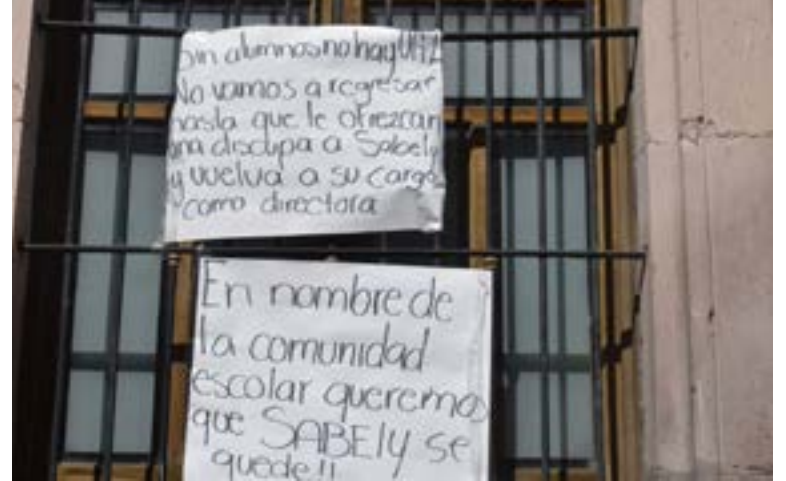 Sin alumnos no hay UAZ
No vamos a regresar
hasta que le ofrezcan
una disclupa a Sabely
y vuelva a su cargo
como directora
En nombre de
la comunidad
escolar queremos
que SABEly se
quede!!